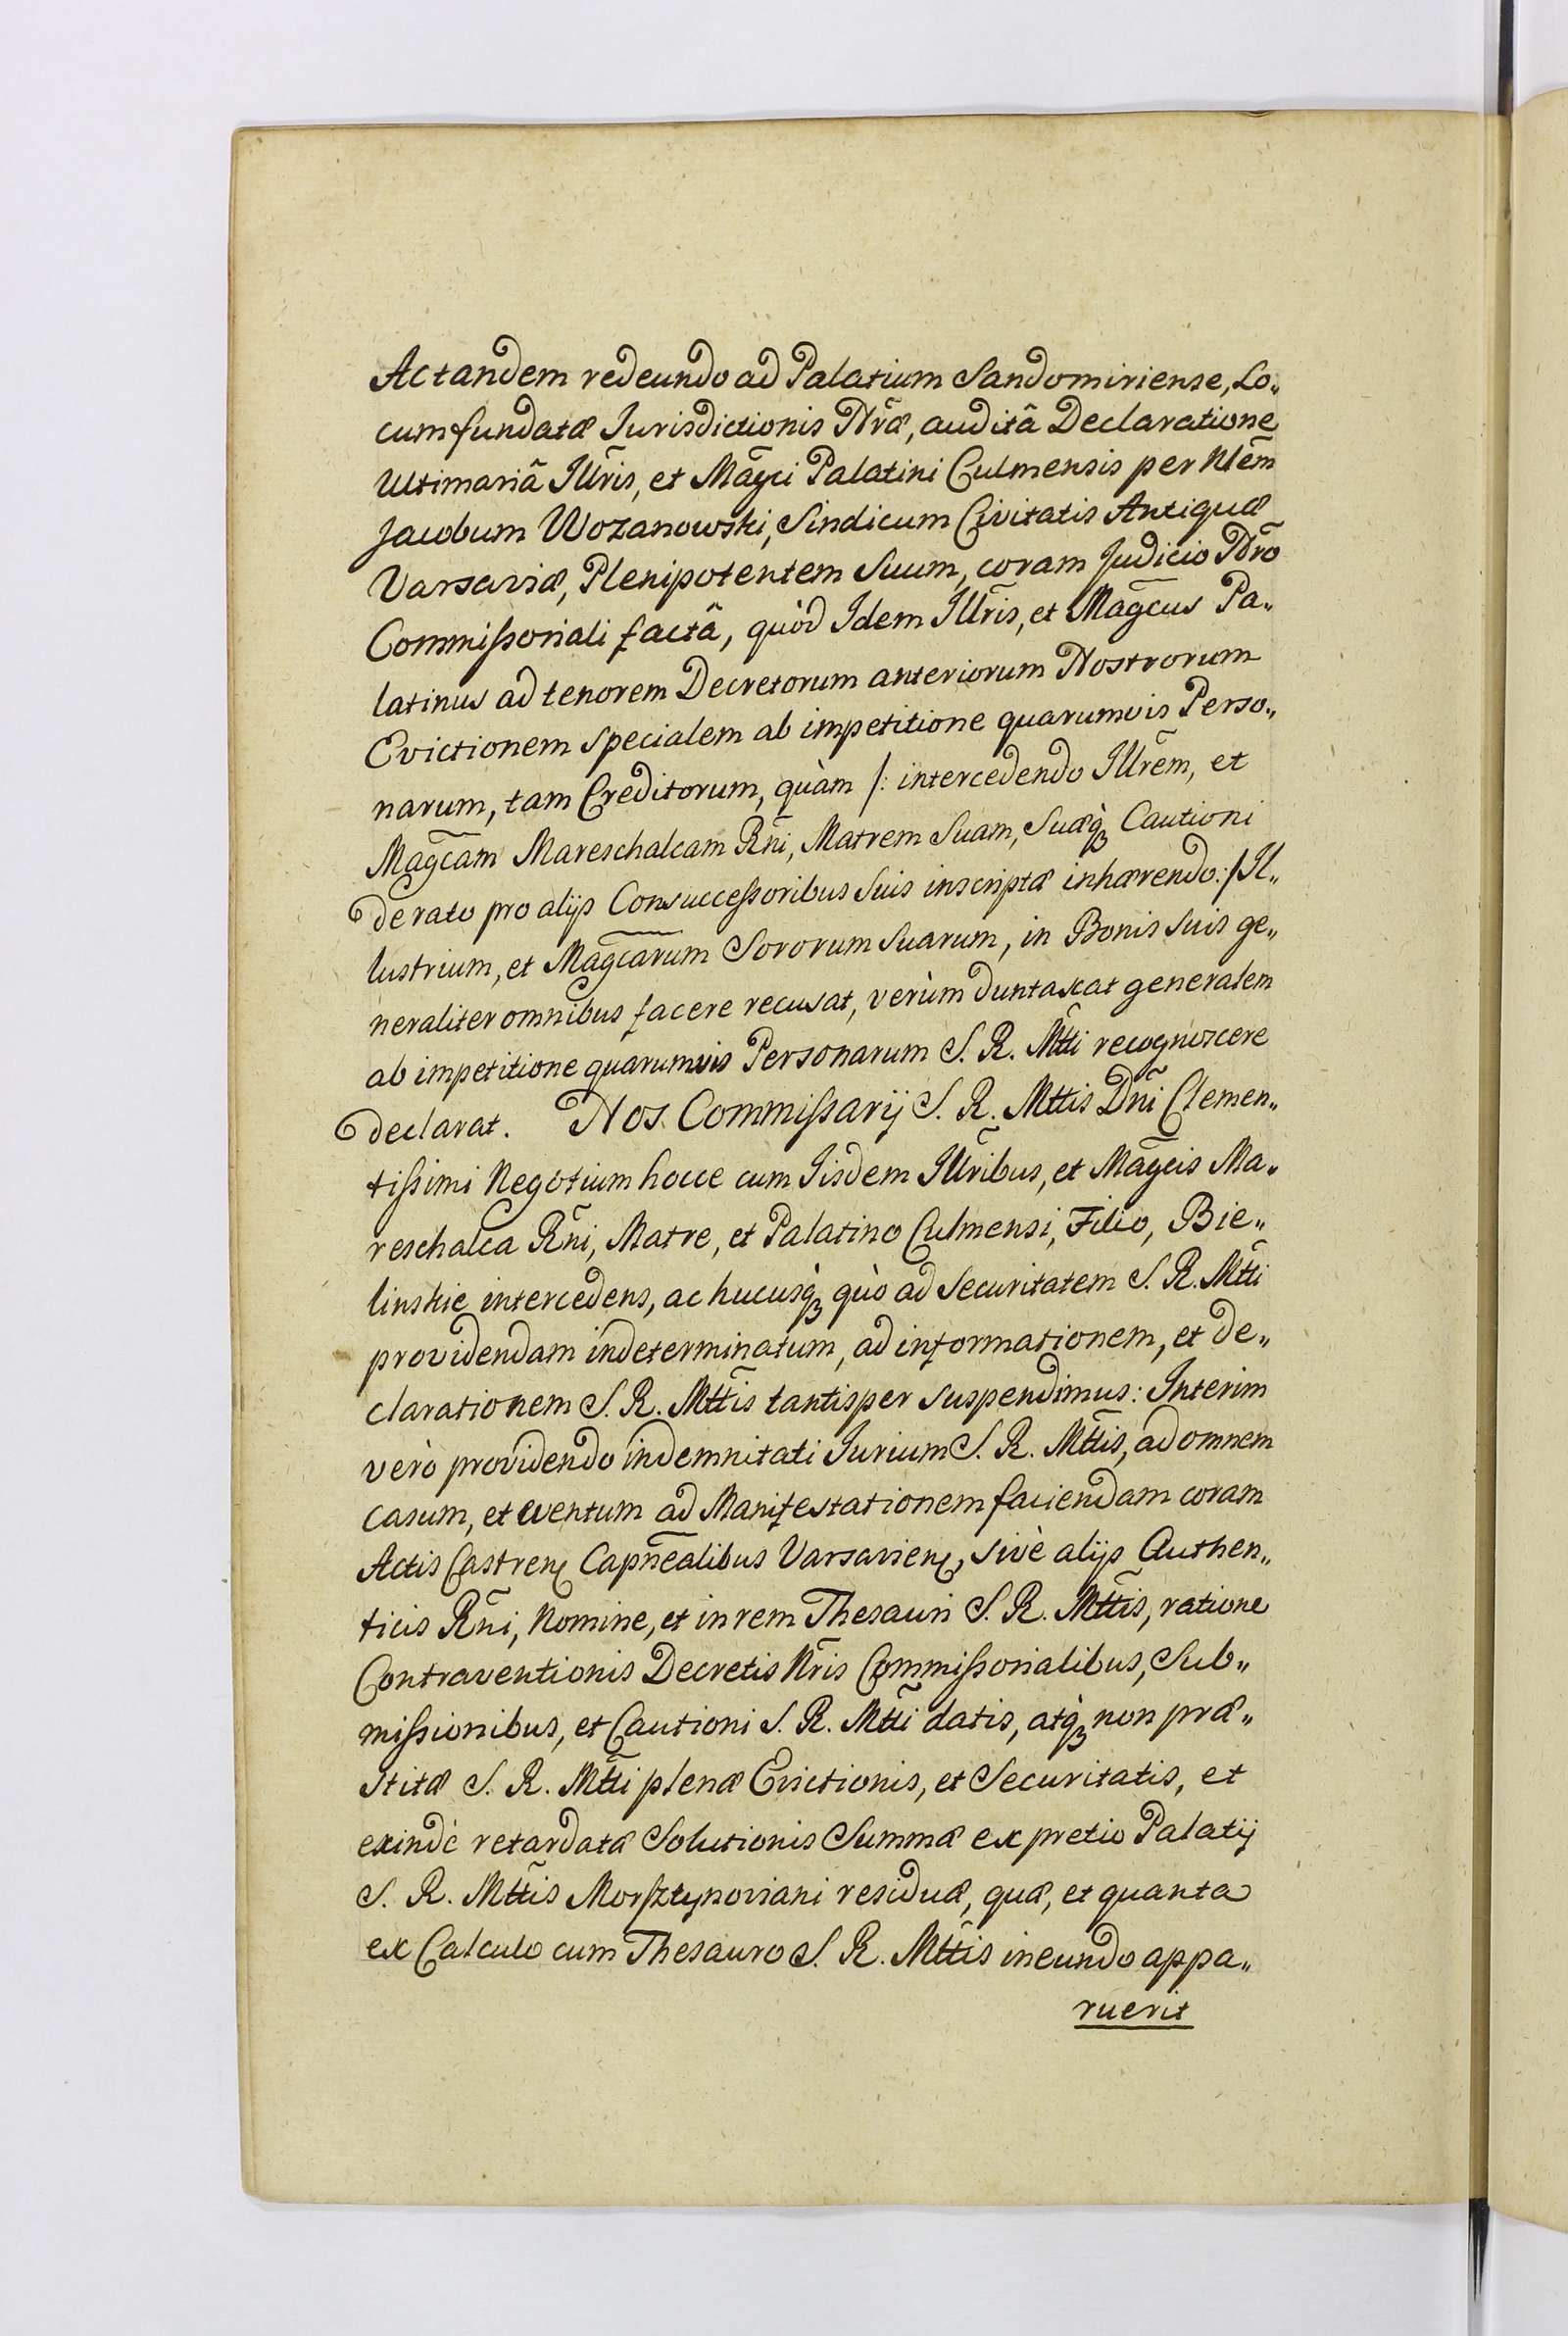 Ac tandem redeundo ad Palatium Sandomiriense, Lo„
cum fundatæ Jurisdictionis Nr̃æ, auditâ Declaratione
Ultimariâ Illr̃is, et Mag̃ci Palatini Culmensis per Nlẽm
Jacobum Wozanowski, Sindicum Civitatis Antiquæ
Varsaviæ, Plenipotentem Suum, coram Judicio Nr̃o
Commiſsoriali factâ, quòd Idem Illr̃is, et Mag̃cus Pa„
latinus ad tenorem Decretorum anteriorum Nostrorum
Evictionem specialem ab impetitione quarumvis Perso„
narum, tam Creditorum, quàm /: intercedendo Illr̃em, et
Mag̃cam Mareschalcam Rñi, Matrem Suam, Suæq̀ꝫ Cautioni
de rato pro alijs Consucceſsoribus Suis inscriptæ inhærendo :/ Il„
lustrium, et Mag̃carum Sororum Suarum, in Bonis Suis ge„
neraliter omnibus facere recusat, verùm duntaxat generalem
ab impetitione quarumvis Personarum S. R. Mtt̃i recognoscere
declarat. Nos Commiſsarij S. R. Mttis Dñi Clemen„
tiſsimi Negotium hocce cum Iisdem Illr̃ibus, et Mag̃cis Ma„
reschalca Rñi, Matre, et Palatino Culmensi, Filio, Bie„
linskie intercedens, ac hucusq̀ꝫ quò ad Securitatem S. R. Mtt̃i
providendam indeterminatum, ad informationem, et de„
clarationem S. R. Mtt̃is tantisper suspendimus: Interim
verò providendo indemnitati Jurium S. R. Mtt̃is, ad omnem
casum, et eventum ad Manifestationem faciendam coram
Actis Castren̄ Capnẽalibus Varsavien̄, sivè alijs Authen„
ticis Rñi, Nomine, et in rem Thesauri S. R. Mtt̃is, ratione
Contraventionis Decretis Nr̃is Commiſsorialibus, Sub„
miſsionibus, et Cautioni S. R. Mtt̃i datis, atq̀ꝫ non præ„
stitæ S. R. Mtt̃i plenæ Evictionis, et Securitatis, et
exindè retardatæ Solutionis Summæ ex pretio Palatij
S. R. Mtt̃is Morſztynoviani residuæ, quæ, et quanta
ex Calculo cum Thesauro S. R. Mtt̃is ineundo appa„
ruerit